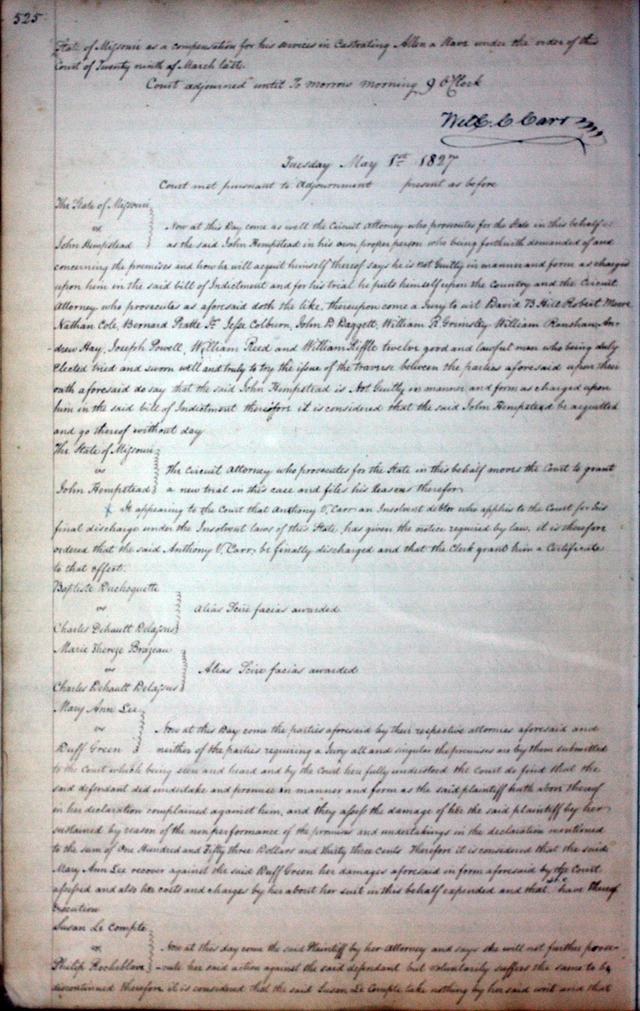 525
State of Missouri as a compensation for his services in Castrating Allen a Slave under the order of this
Court of Twenty ninth of March last.
Court adjourned until To morrow morning 9 OClock
Will. C. Carr
Tuesday May 1st 1827
Court met pursuant to Adjournment present as before
The State of Missouri
vs
John Hempstead
Now at this Day come as well the Circuit Attorney who prosecutes for the State in this behalf
as the said John Hempstead in his own proper person who being forthwith demanded of and
concerning the premises and how he will acquit himself thereof says he is not Guilty in manner and form as charged
upon him in the said bill of Indictment and for his trial he puts himself upon the Country and the Circuit
Attorney who prosecutes as aforesaid doth the like, thereupon come a Jury to wit David B Hill Robert Moore
Nathan Cole, Bernard Pratte Jr Jesse Colburn, John D Daggett, William R Grimsley William Renshaw An-
drew Hay, Joseph Powell, William Reed and William Siffle twelve good and lawful men who being duly
Elected tried and sworn well and truly to try the issue of the traverse between the parties aforesaid upon their
oath aforesaid do say that the said John Hempstead is Not Guilty in manner and form as charged upon
him in the said bill of Indictment therefore it is considered that the said John Hempstead be acquitted
and go thereof without day
The State of Missouri
vs
John Hempstead
The Circuit Attorney who prosecutes for the State in this behalf moves the Court to grant
a new trial in this case and files his reasons therefor
It appearing to the Court that Anthony V. Carr an Insolvent debtor who applies to the Court for his
final discharge under the Insolvent laws of this State, has given the notice required by law, it is therefore
ordered that the said Anthony V. Carr, be finally discharged and that the Clerk grant him a Certificate
to that effect.
Baptiste Duchoquette
vs
Charles Dehault Delassus
Alias Scire facias awarded
Marie Therese Brazeau
vs
Charles Dehault Delassus
Alias Scire facias awarded
Mary Ann Lee
vs
Duff Green
Now at this Day come the parties aforesaid by their respective attornies aforesaid and
neither of the parties requiring a Jury all and singular the premises are by them submitted
to the Court which being seen and heard and by the Court here fully understood the Court do find that the
said defendant did undertake and promise in manner and form as the said plaintiff hath above thereof
in her declaration complained against him, and they assess the damage of her the said plaintiff by her
sustained by reason of the non performance of the promises and undertakings in the declaration mentioned
to the sum of One Hundred and Fifty three Dollars and thirty three cents Therefore it is considered that the said
Mary Ann Lee recover against the said Duff Green her damages aforesaid in form aforesaid by the Court
assessed and also her costs and charges by her about her suit in this behalf expended and that she have thereof
Execution
Susan Le Compte
vs
Philip Rocheblave
Now at this day come the said Plaintiff by her Attorney and says she will not further prose-
cute her said action against the said dependant but voluntarily suffers the same to be
discontinued therefore it is considered that the said Susan Le Compte take nothing by her said writ and that